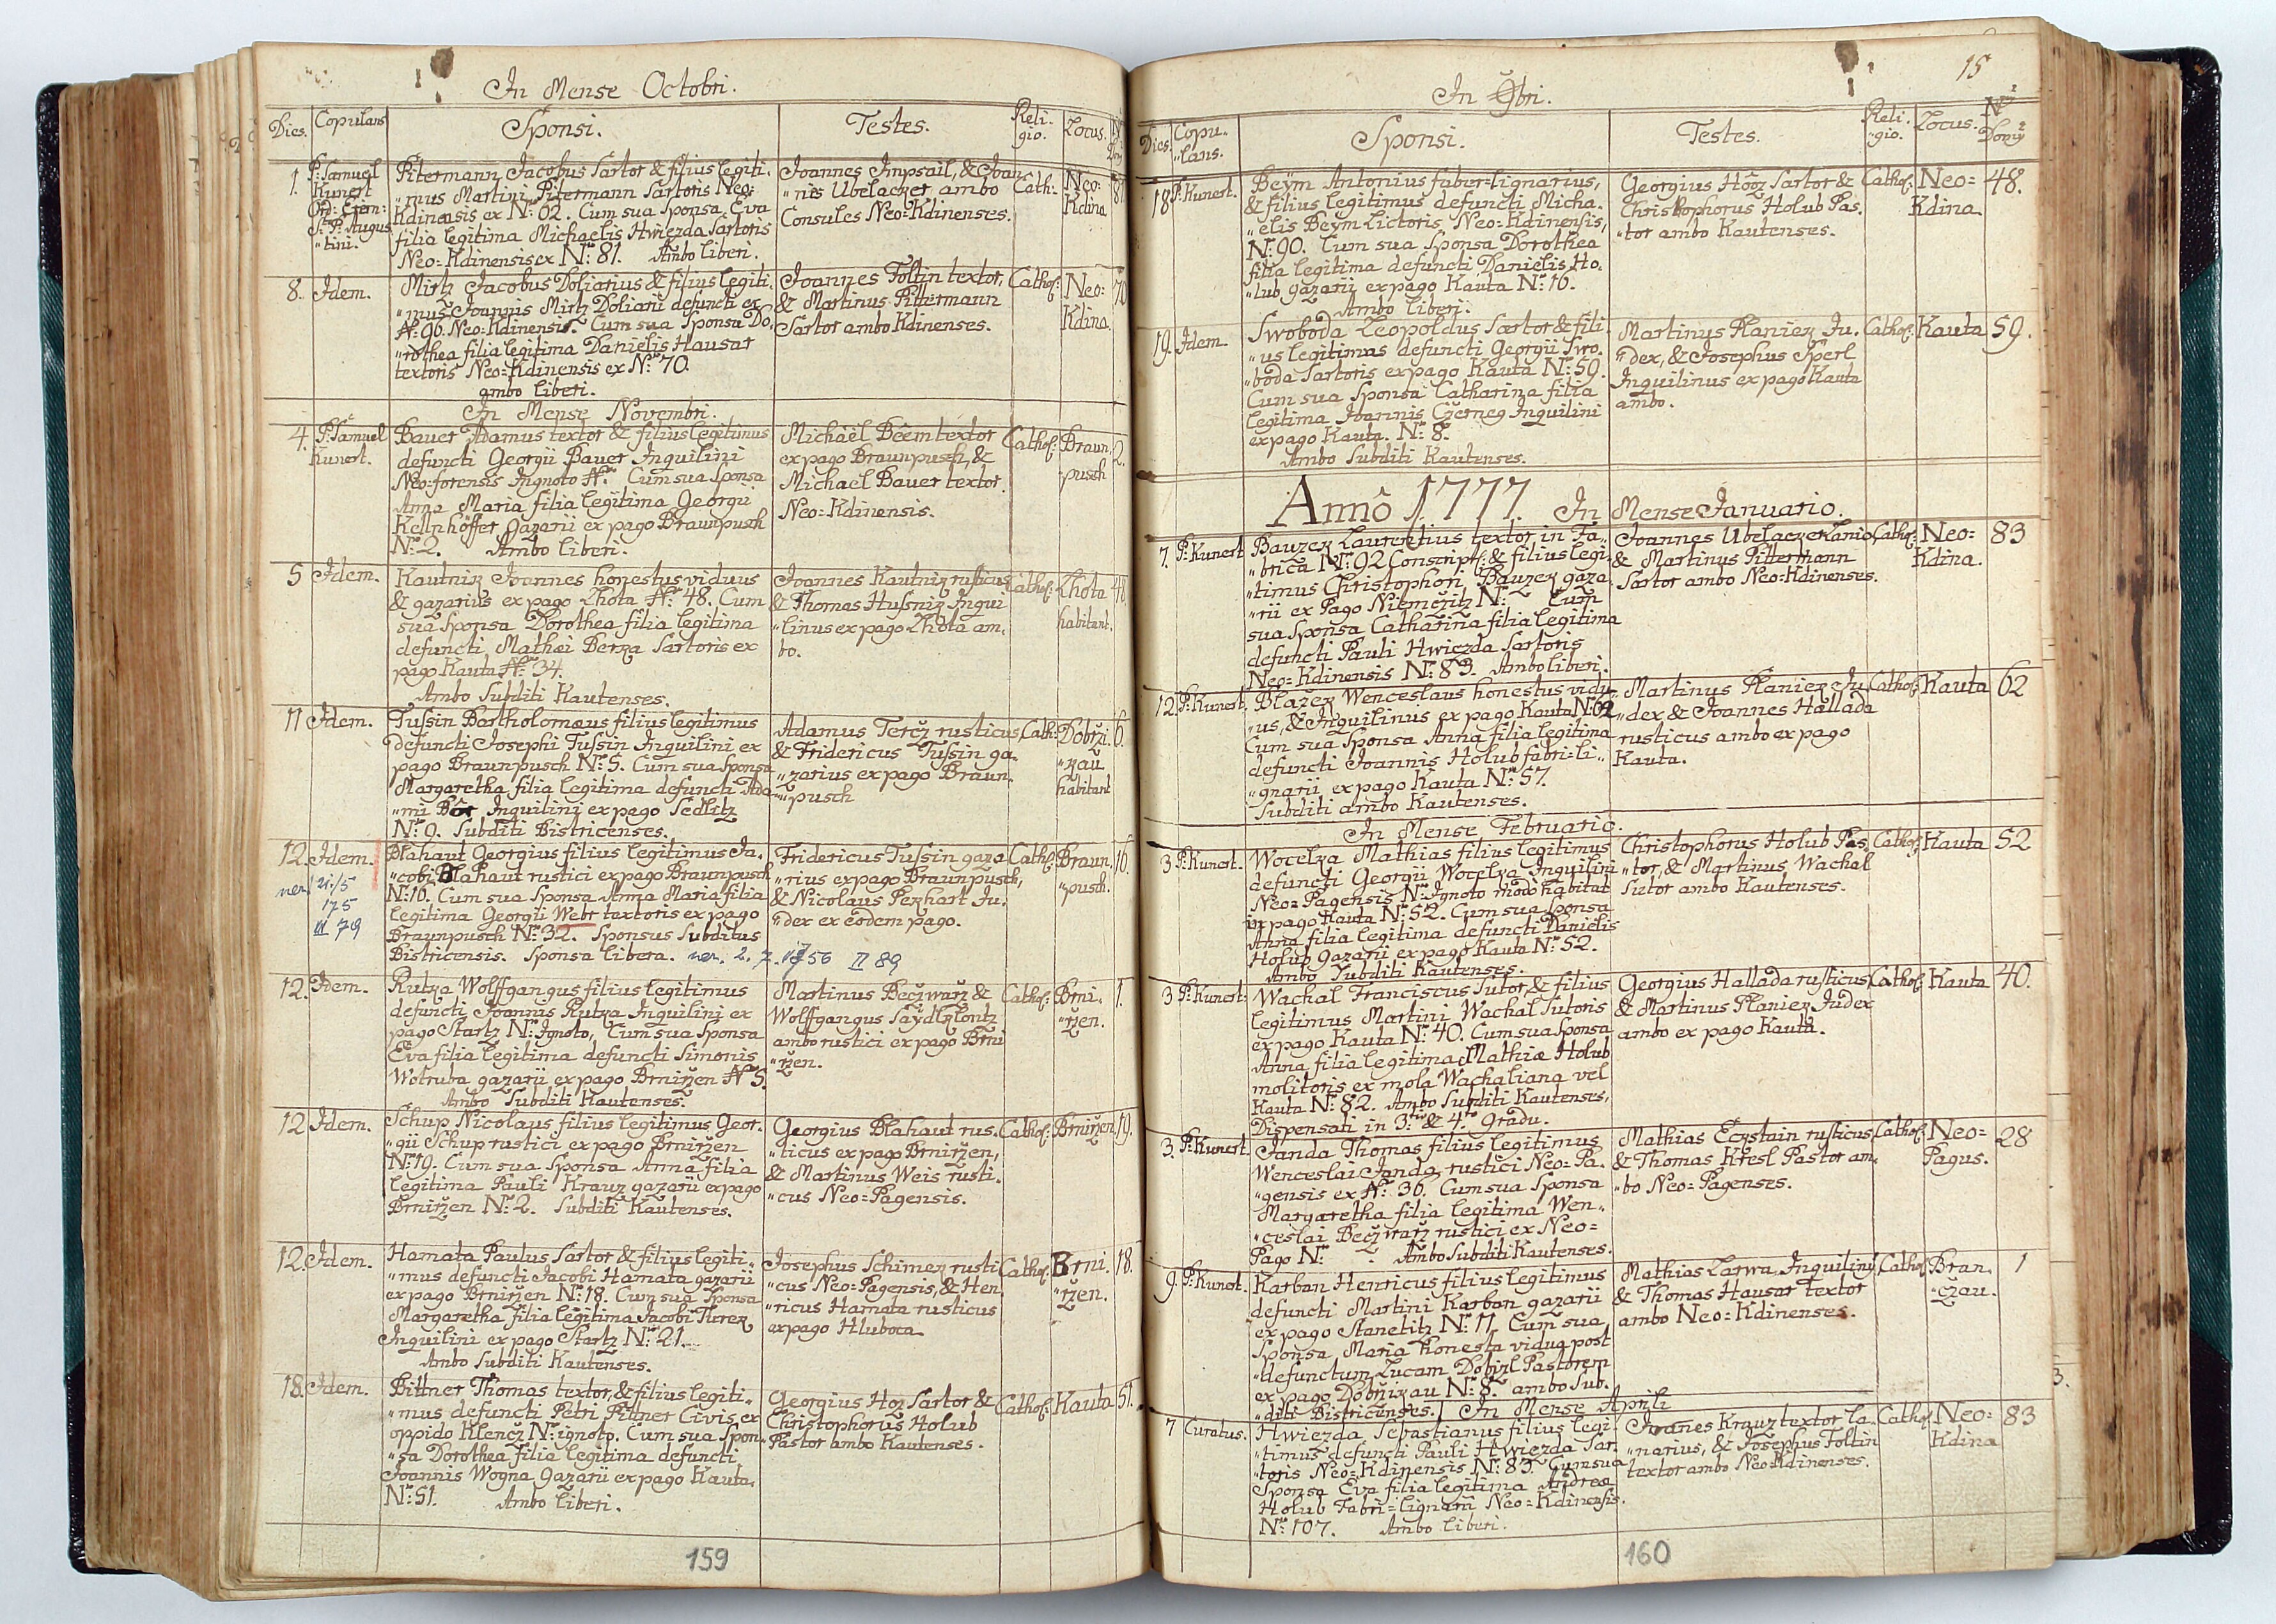 In Mense Octobri.
Dies. Copulans Sponsi. Testes. Reli-gio. Locus. Domy
1. P: Samuel
Kunert
Ord: Erem:
S: P: Augus
"tini.
Pitermann Jacobus Sartor & filius legiti-
"mus Martini Pitermann Sartoris Neo-
Kdinensis ex No: 62. Cum sua Sponsa Eva
filia legitima Michaelis Hwiezda Sartoris
Neo=Kdinensis ex No: 81. Ambo liberi.
Joannes Impsail, & Joan-
"nes Ubelacker ambo
Consules Neo=Kdinenses.
Cath:
Neo:
Kdina
81
8. Idem.
Mirtz Jacobus Doliarius & filius legiti-
"mus Joannis Mirtz Doliarii defuncti ex
No: 96. Neo=Kdinensis. Cum sua Sponsa Do-
"rothea filia legitima Danielis Hausar
textoris Neo=Kdinensis ex No: 70.
ambo liberi.
Joannes Toltin textor,
& Martinus Pittermann
Sartor ambo Kdinenses.
Cathol:
Neo=
Kdina.
70
In Mense Novembri.
4. P: Samuel
Kunert.
Bauer Adamus textor & filius legitimus
defuncti Georgii Bauer Inquilini
Neo=forensis Ingnoto No: Cum sua Sponsa
Anna Maria filia legitima Georgii
Kellnhöffer gazarii ex pago Braunpusch
No: 2. Ambo liberi.
Michaël Böem textor
ex pago Braunpusch, &
Michael Bauer textor
Neo=Kdinensis.
Cathol:
Braun,
"pusch
2.
5 Idem.
Kautnik Joannes honestus viduus
& gazarius ex pago Lhota No: 48. Cum
sua Sponsa Dorothea filia legitima
defuncti Mathæi Berka Sartoris ex
pago Kauta No: 34.
Ambo Subditi Kautenses.
Joannes Kautnik rusticus
& Thomas Husnik Inqui
"linus ex pago Lhota am,
bo.
Cathol:
Lhota
habitant.
48
11 Idem.
Tussin Bartholomæus filius legitimus
defuncti Josephi Tussin Inquilini ex
pago Braunpusch No: 5. Cum sua Sponsa
Margaretha filia legitima defuncti Ada-
"mi Bör Inquilini ex pago Sedlitz
No: 9. Subditi Bistricenses.
Adamus Tercz rusticus
& Fridericus Tussin ga-
"zarius ex pago Braun-
"pusch
Cath:
Dobrzi.
"kau
habitant
6.
12. Idem.
nar. 21/5
175
III 79
Blahaut Georgius filius legitimus Ja-
"cobi Blahaut rustici ex pago Braunpusch
No: 16. Cum sua Sponsa Anna Maria filia
legitima Georgii Webr textoris ex pago
Braunpusch No: 32. Sponsus Subditus
Bistricensis. Sponsa libera. nar. 2. 7. 1756 II 89
Fridericus Tussin gaza-
"rius ex pago Braunpusch,
& Nicolaus Pekhart Ju-
"dex ex eodem pago.
Cathol:
Braun,
"pusch.
16.
12. Idem.
Kutka Wolffgangus filius legitimus
defuncti Joannis Kutka Inquilini ex
pago Startz No: Ignoto, Cum sua Sponsa
Eva filia legitima defuncti Simonis
Wotruba gazarii ex pago Brnirzen No: 5.
Ambo Subditi Kautenses.
Martinus Beczwarz &
Wolffgangus Saydlklontz
ambo rustici ex pago Brni
"rzen.
Cathol:
Brni.
"rzen.
1.
12 Idem.
Schup Nicolaus filius legitimus Geor-
"gii Schup rustici ex pago Brnirzen
No: 19. Cum sua Sponsa Anna filia
legitima Pauli Krauz gazarii ex pago
Brnirzen No: 2. Subditi Kautenses.
Georgius Blahaut rus-
"ticus ex pago Brnirzen,
& Martinus Weis rusti-
"cus Neo=Pagensis.
Cathol:
Brnirzen
19.
12. Idem.
Hamata Paulus Sartor & filius legiti-
"mus defuncti Jacobi Hamata gazarii
ex pago Brnirzen No: 18. Cum sua Sponsa
Margaretha filia legitima Jacobi Turek
Inquilini ex pago Startz No: 21.
Ambo Subditi Kautenses.
Josephus Schimek rusti
"cus Neo=Pagensis, & Hen,
"ricus Hamata rusticus
ex pago Hluboca
Cathol:
Brni.
"rzen.
18.
18. Idem.
Bittner Thomas textor, & filius legiti-
"mus defuncti Petri Pittner Civis ex
oppido Klencz No: ignoto. Cum sua Spon-
"sa Dorothea filia legitima defuncti
Joannis Wogna gazarii ex pago Kauta
No: 51. Ambo liberi.
Georgius Hoz Sartor &
Christophorus Holub
Pastor ambo Kautenses.
Cathol:
Kauta
51.
159
In 9bri.
15
Dies. Copu-
"lans. Sponsi. Testes. Reli-
"gio. Locus. No
Domy
18 P: Kunert.
Beÿm Antonius faber=lignarius,
& filius legitimus defuncti Micha-
"elis Beÿm Lictoris Neo=Kdinensis,
No: 90. Cum sua Sponsa Dorothea
filia legitima defuncti Danielis Ho-
"lub gazarii ex pago Kauta No: 16.
Ambo liberi.
Georgius Hooz Sartor &
Christophorus Holub Pas.
"tor ambo Kautenses.
Cathol:
Neo=
Kdina.
48.
19. Idem.
Swoboda Leopoldus Sartor & fili-
"us legitimus defuncti Georgii Swo-
"boda Sartoris ex pago Kauta No: 59.
Cum sua Sponsa Catharina filia
legitima Joannis Czerneg Inquilini
ex pago Kauta. No: 8.
Ambo Subditi Kautenses.
Martinus Planiek Ju-
"dex, & Josephus Sperl
Inquilinus ex pago Kauta
ambo.
Cathol:
Kauta
59.
Annô 1777. In Mense Januario.
7. P: Kunert
Bauzek Laurentius textor in Fa-
"brica No: 92 Conscript: & filius legi-
"timus Christophori Bauzek gaza-
"rii ex Pago Niemczitz No: Cum
sua Sponsa Catharina filia legitima
defuncti Pauli Hwiezda Sartoris
Neo=Kdinensis No: 83. Ambo liberi.
Joannes Ubelacker Lanio
& Martinus Pittermann
Sartor ambo Neo=Kdinenses.
Cathol:
Neo=
Kdina.
83
12. P: Kunert,
Blažek Wenceslaus honestus vidu-
"us, & Inquilinus ex pago Kauta No: 62
Cum sua Sponsa Anna filia legitima
defuncti Joannis Holub fabri=li-
"gnarii ex pago Kauta No: 57.
Subditi ambo Kautenses.
Martinus Planiek Ju-
"dex & Joannes Hallada
rusticus ambo ex pago
Kauta.
Cathol:
Kauta
62
In Mense Februario.
3 P: Kunert.
Wocelka Mathias filius legitimus
defuncti Georgii Wocelka Inquilini
Neo=Pagensis No: Ignoto modo habitat
in pago Kauta No: 52. Cum sua Sponsa
Anna filia legitima defuncti Danielis
Holub gazarii ex pago Kauta No: 52.
Ambo Subditi Kautenses.
Christophorus Holub Pas
"tor, & Martinus Wachal
Sutor ambo Kautenses.
Cathol:
Kauta
52
3 P: Kunert.
Wachal Franciscus Sutor, & filius
legitimus Martini Wachal Sutoris
ex pago Kauta No: 40. Cum sua Sponsa
Anna filia legitima Mathiæ Holub
molitoris ex mola Wachaliana vel
Kauta No: 82. Ambo Subditi Kautenses,
Dispensati in 3tio & 4to Gradu.
Georgius Hallada rusticus
& Martinus Planiek Judex
ambo ex pago Kauta.
Cathol:
Kauta
40.
3. P: Kunert.
Janda Thomas filius legitimus
Wenceslai Janda rustici Neo=Pa-
"gensis ex No: 36. Cum sua Sponsa
Margaretha filia legitima Wen-
"ceslai Beczwarz rustici ex Neo=
Pago No: . Ambo Subditi Kautenses.
Mathias Eckstain rusticus
& Thomas Kresl Pastor am-
"bo Neo=Pagenses.
Cathol:
Neo=
Pagus.
28
9. P: Kunert.
Karban Henricus filius legitimus
defuncti Martini Karban gazarii
ex pago Stanetitz No: 11. Cum sua
Sponsa Maria honesta vidua post
"defunctum Lucam Dobzl Pastorem
ex pago Dobrzikau No: 8. ambo Sub-
"diti Bistricenses.
Mathias Larwa Inquilinus
& Thomas Hausar textor
ambo Neo=Kdinenses.
Cathol:
Bran,
"czau.
1
In Mense Aprili
7 Curatus.
Hwiezda Sebastianus filius legi-
"timus defuncti Pauli Hwiezda Sar-
"toris Neo=Kdinensis No: 83. Cum sua
Sponsa Eva filia legitima Andreæ
Holub Fabri=lignarii Neo=Kdinensis.
No: 107. Ambo liberi.
Joannes Krauz textor la-
"narius, & Josephus Toltin
textor ambo Neo=Kdinenses.
Cathol:
Neo=
Kdina
83
160